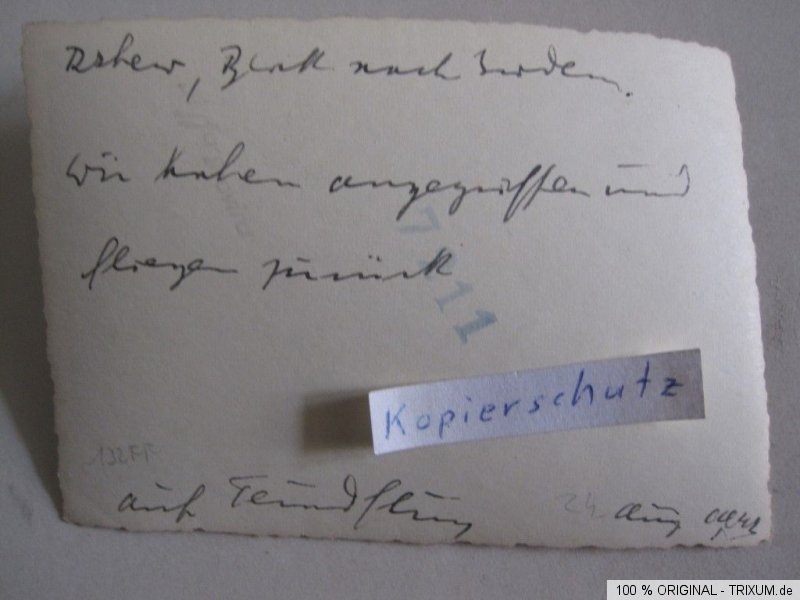 Rshew, Blick nach Süden.
wir haben angegriffen und
fliegen zurück
7111
Kopierschutz
132FF
auf Feindflug 24. Aug
100 % ORIGINAL - TRIXUM.de